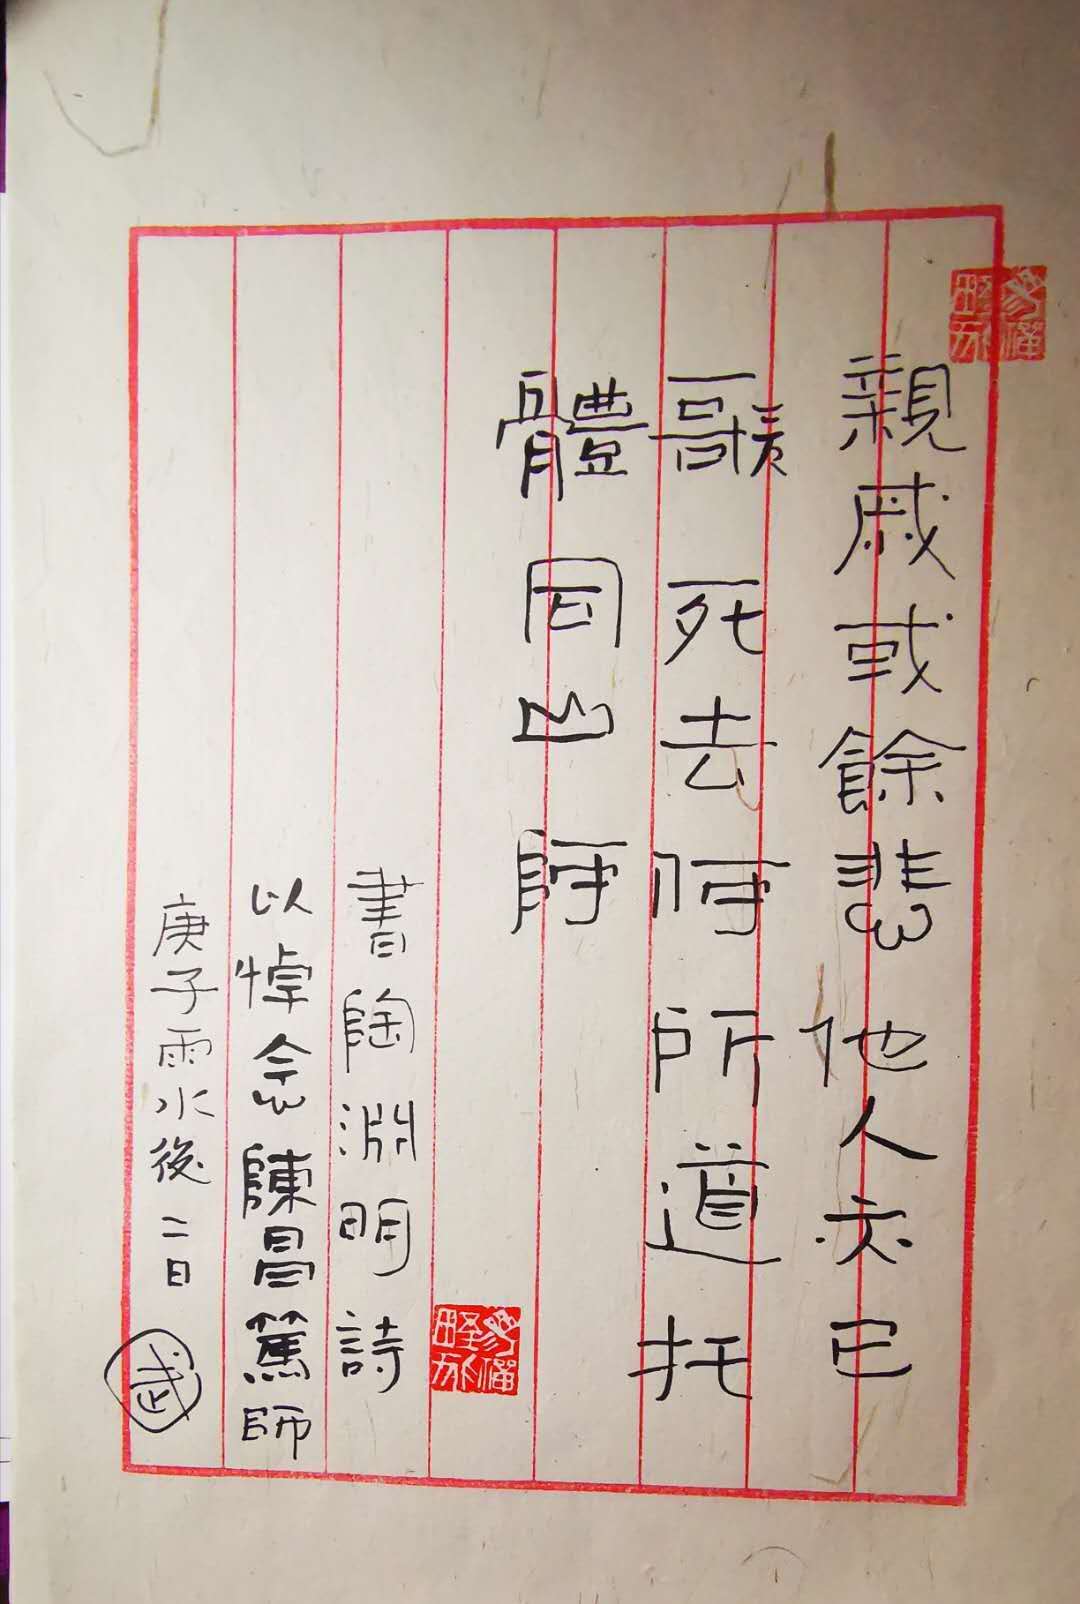 親戚或餘悲他人亦已
歌死去何所道托
體同山阿
書陶淵明詩
以悼念陳昌篤師
庚子雨水後二日
武